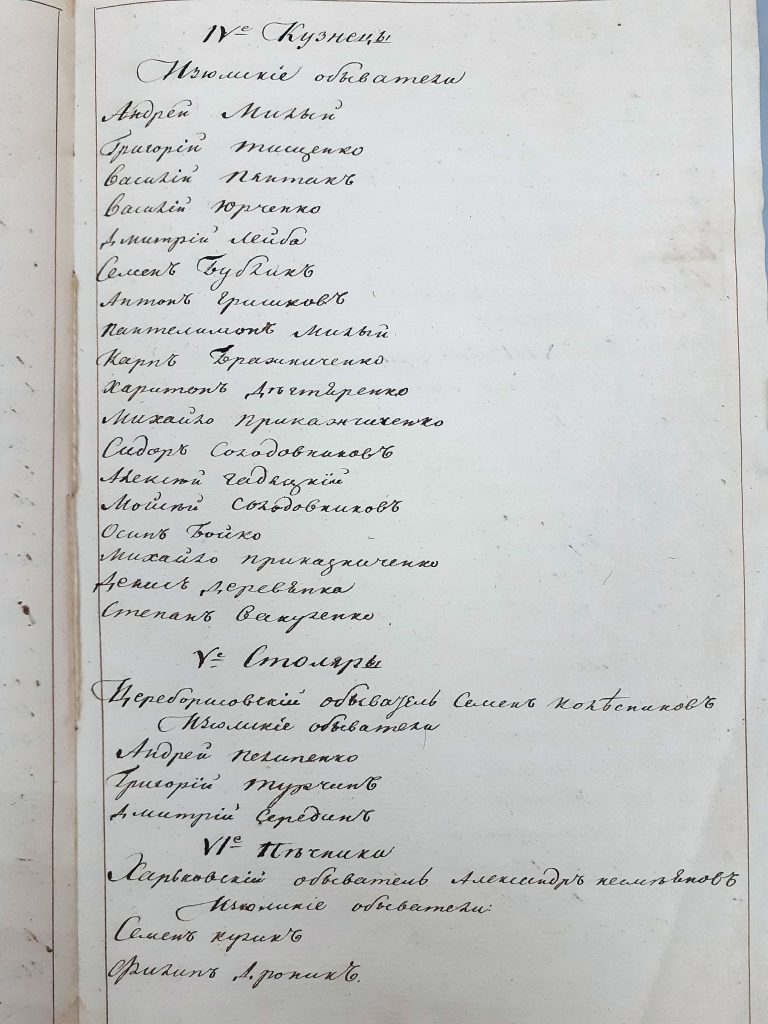 IVе Кузнецы
Изюмскіе обыватели
Андрей Милый
Григорій Тищенко
Василій Пянтакъ
Василій Юрченко
Дмитрій Лейба
Семенъ Бублikъ
Антонъ Гришковъ
Пантелимонъ Милый
Карпъ Бражниченко
Харитонъ Дѣхтяренко
Михайло
Сидоръ Солодовниковъ
Алексѣй Гадяцкій
Мойсѣй Солодовниковъ
Осипъ Бойко
Михайло Приказниченко
Денисъ Деревянка
Степанъ Вакуленко
Vе Столяры
Цереборисовскій обыватель Семенъ Колѣсниковъ
Изюмскіе обыватели
Андрей Пелипенко
Григорій Турчинъ
Дмитрій Серединъ
VIе Пѣчники
Харьковскій обыватель Александръ Несмѣяновъ
Изюмскіе обыватели:
Семенъ
Филипъ Дроникъ.